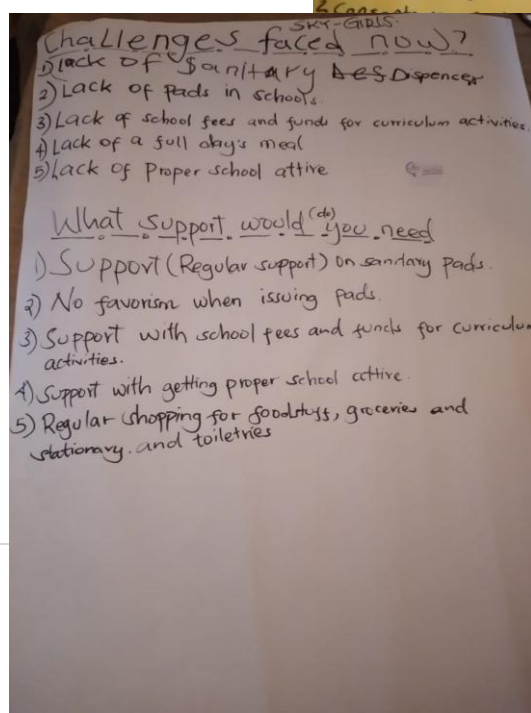 SKY-GIRLS.
Challenges faced now?
1) Lack of Sanitary Dispencer
2) Lack of pads in schools.
3) Lack of school fees and funds for curriculum activities.
4) Lack of a full day's meal
5) Lack of Proper school attire
What support would (do) you need
1) Support (Regular support) on sanitary pads.
2) No favorism when issuing pads.
3) Support with school fees and funds for curriculum
activities.
4) Support with getting proper school attire.
5) Regular shopping for foodstuff, groceries and
stationary. and toiletries